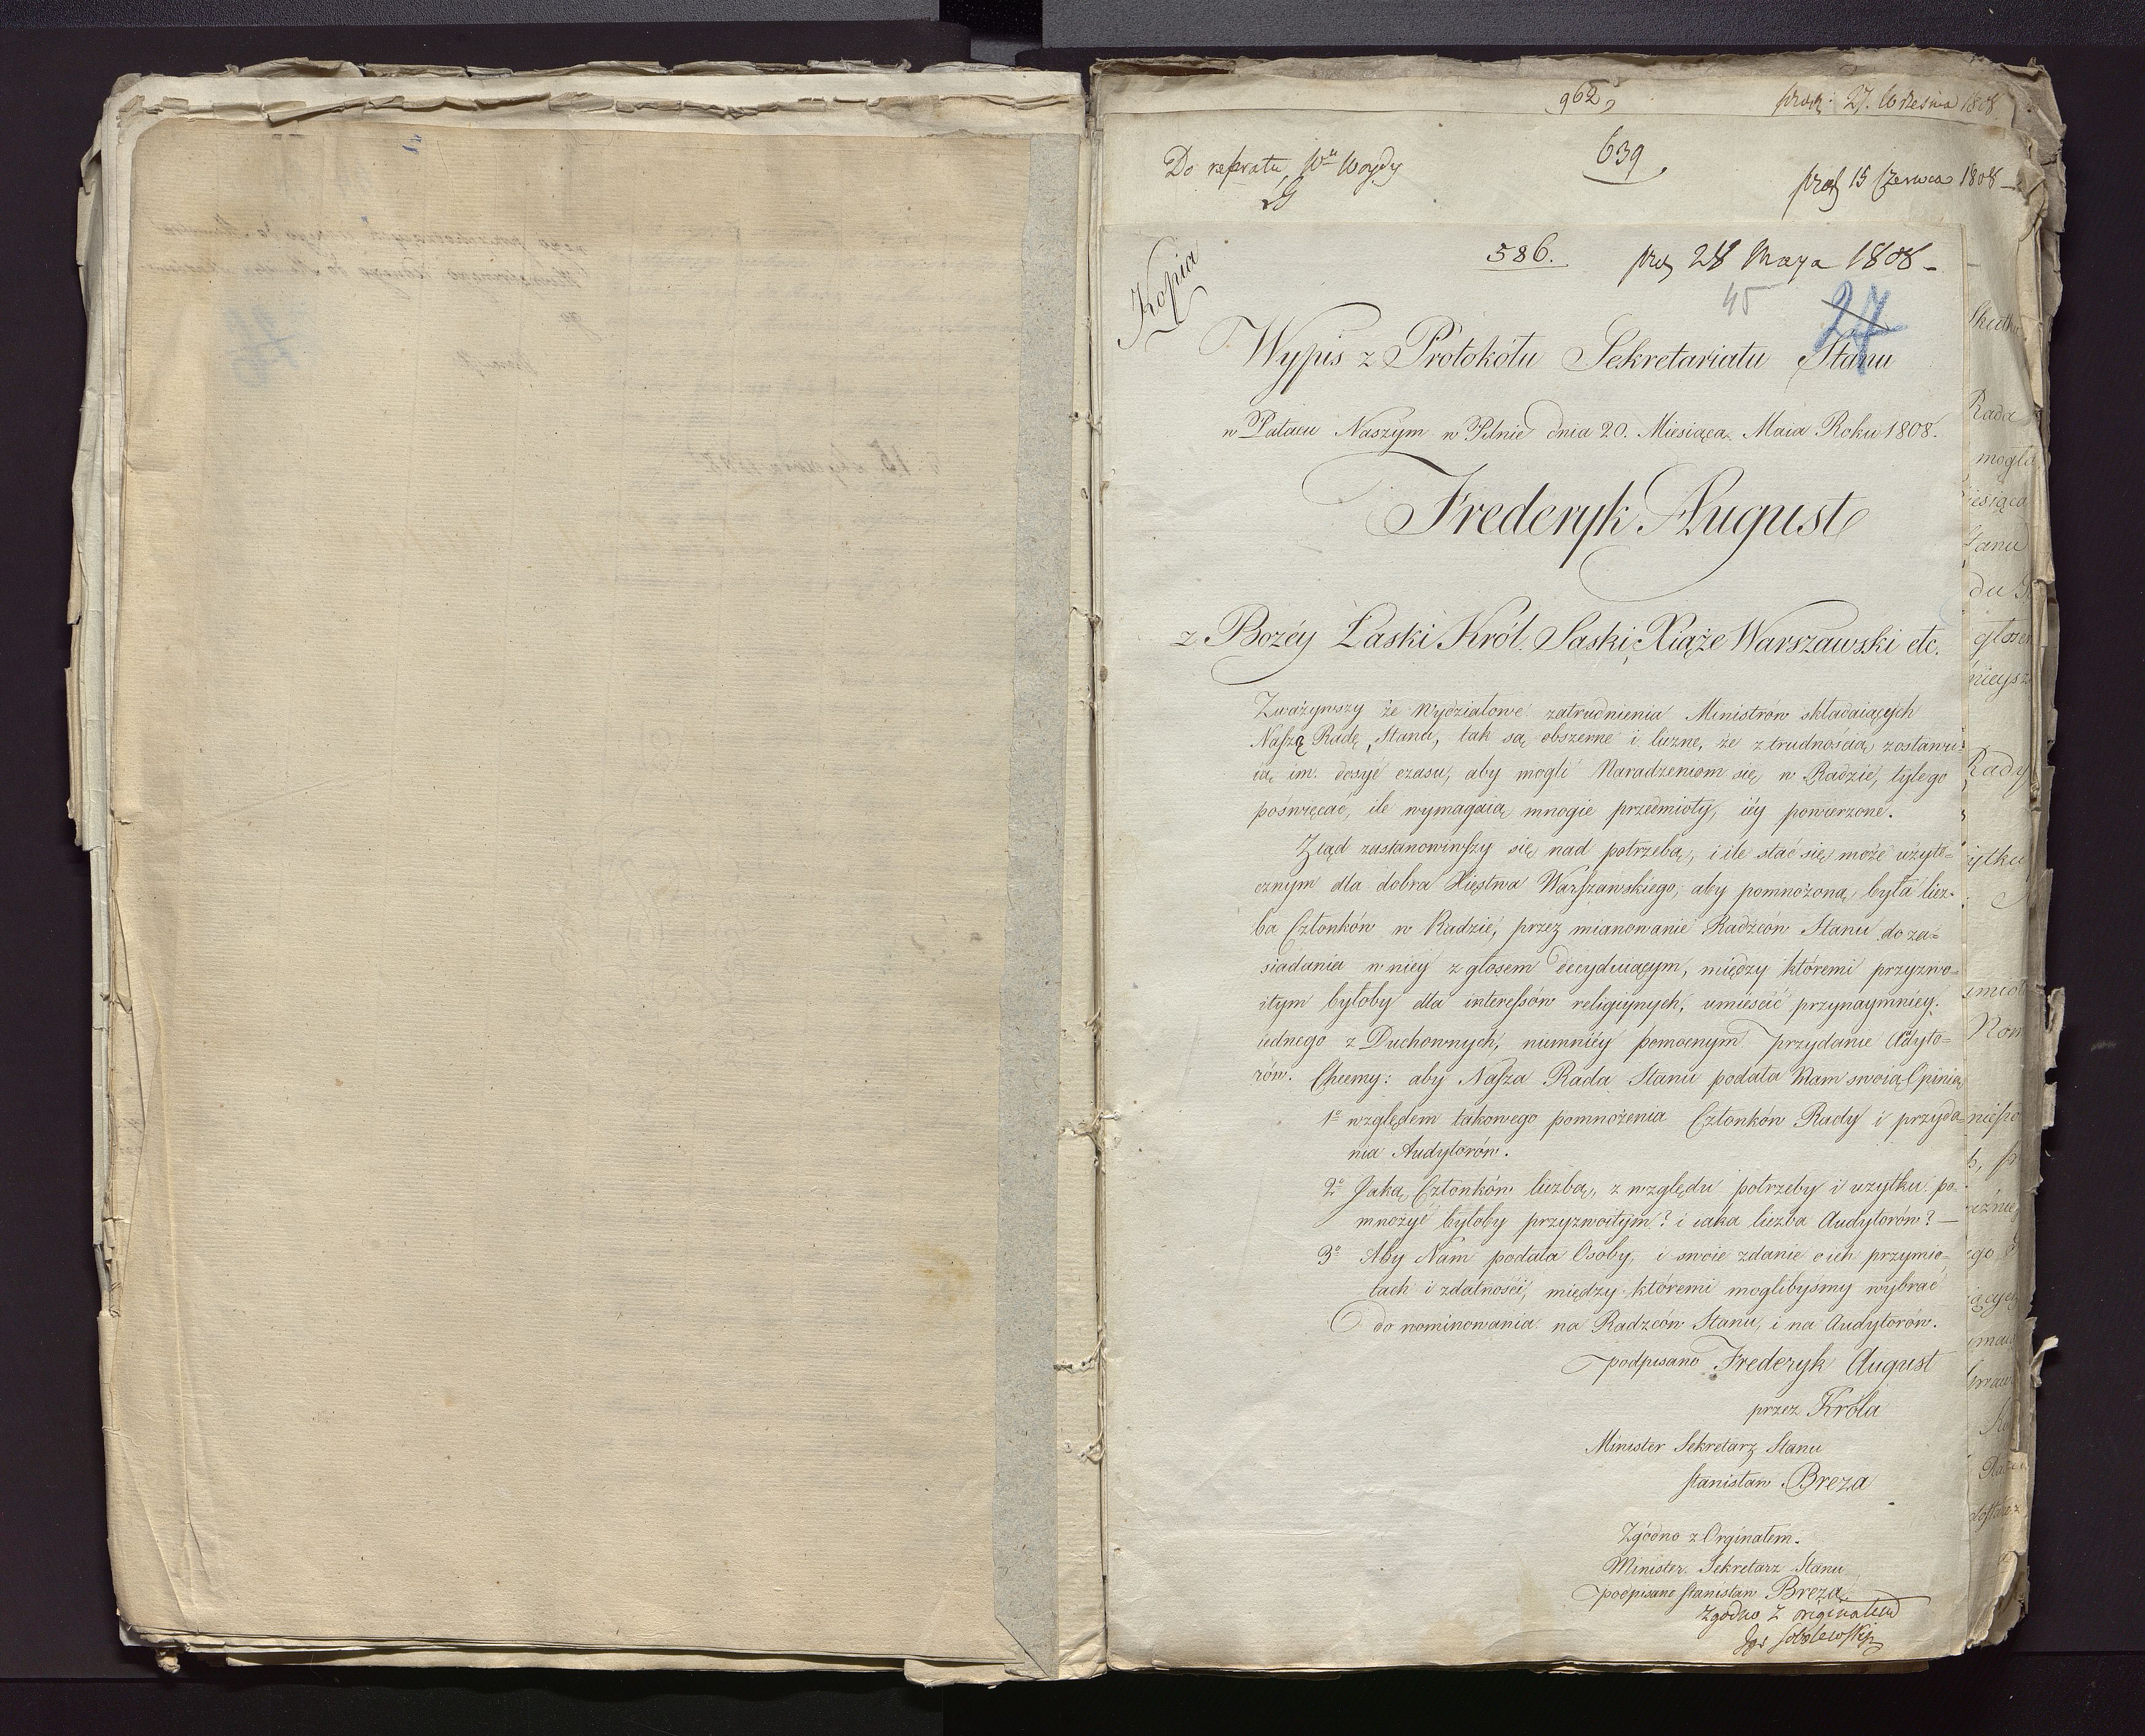 962,
27. Września 1808
Do referatu Wo Woydy
639
15 Czerwca 1808
Kopia
586. prez 28 Maya 1808
45
27
Wypis z Protokółu Sekretariatu Stanu
w Pałacu Naszym w Pilnie dnia 20. Miesiąca Maia Roku 1808.
Frederyk August
z Bożéy Łaski Król Saski, Xiąże Warszawski etc.
Zważywszy że Wydziałowe zatrudnienia Ministrów składaiących
Naszą Radę Stanu, tak są obszerne i liczne, że z trudnością zostawu=
ią im dosyć czasu, aby mogli Naradzeniom się w Radzie, tyle go
poświęcać, ile wymagaią mnogie przedmioty, iéy powierzone.
Ztąd zastanowiwszy się nad potrzebą, i ile stać się może użyte=
cznym dla dobra Xięstwa Warszawskiego, aby pomnożoną była licz=
ba Członków w Radzie, przez mianowanie Radzców Stanu do za=
siadania w niey z głosem decyduiącym, między któremi przyzwo=
itym byłoby dla interessów religiynych, umieścić przynaymniéy
iednego z Duchownych, niemniéy pomocnym przydanie Audyto=
rów. Chcemy: aby Nasza Rada Stanu podała Nam swoią Opinią
1o względem takowego pomnożenia Członków Rady i przyda=
nia Audytorów.
2o Jaką Członków liczbą, z względu potrzeby i użytku po=
mnożyć byłoby przyzwoitym? i iaka liczba Audytorów? —
3o Aby Nam podała Osoby, i swoie zdanie o ich przymio=
tach i zdatności, między któremi moglibyśmy wybrać
do nominowania na Radzców Stanu, i na Audytorów.
podpisano Frederyk August
przez Króla
Minister Sekretarz Stanu
Stanisław Breza
Zgódno z Orginałem.
Minister Sekretarz Stanu
podpisano Stanisław Breza
Zgodno z originałem
Sobolewski
Rada
mogła
iesiąca
Stanu
Rady